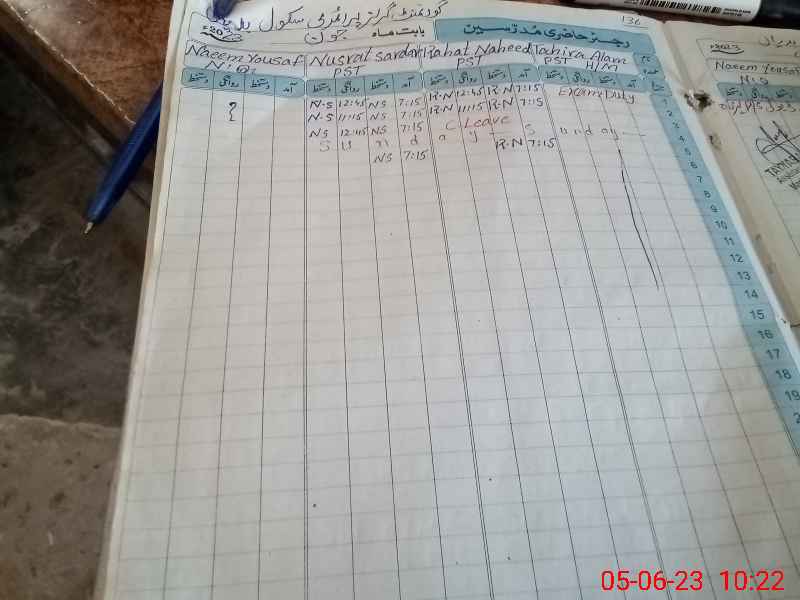 136
گورنمنٹ گرلز پرائمری سکول
رجسٹر حاضری مدرسین بابت ماہ جون 2023ء
Naeem Yousaf Nusrat Sardar Rahat Naheed Tahira Alam
N.Q. PST PST PST
آمد دستخط روانگی دستخط آمد دستخط روانگی دستخط آمد دستخط روانگی دستخط آمد دستخط روانگی دستخط
N.S 12:45 NS 7:15 R.N 12:45 R.N 7:15 Exam Duty 1
N.S 11:15 NS 7:15 R.N 11:15 R.N 7:15 2
NS 12:45 NS 7:15 C Leave 3
S u n d a y S u n d a y 4
NS 7:15 R.N 7:15 5
6
7
8
9
10
11
12
13
14
15
16
17
18
19
2023ء
Naeem Yousaf
N.S
05-06-23 10:22